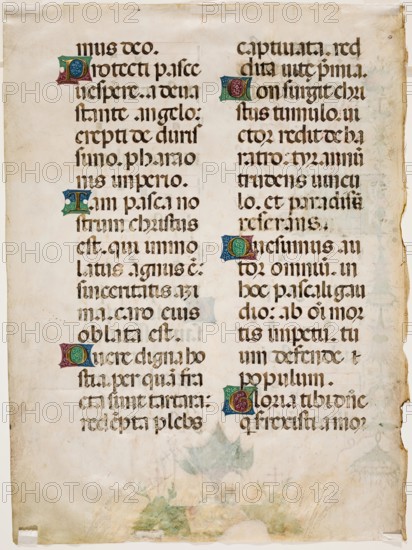 mus deo.
Protecti pasce
uespere. a deua
stante angelo:
erepti de duris
simo. pharao
nis imperio.
Iam pasca no
strum christus
est. qui immo
latus agnus ē:
sinceritatis azi
ma. caro eius
oblata est.
O uere digna ho
stia. per quā fra
cta sunt tartara:
redēpta plebs
captiuata. red
dita uite p̄mia.
Consurgit chri
stus tumulo. ui
ctor redit de ba
ratro: tyrannū
trudens uincu
lo. et paradisū
reserans.
Quesumus au
tor omniū. in
hoc pascali gau
dio: ab oī mor
tis impetu. tu
um defende
populum.
Gloria tibi dn̄e
q̄ surrexisti a mor
PHOTO 12